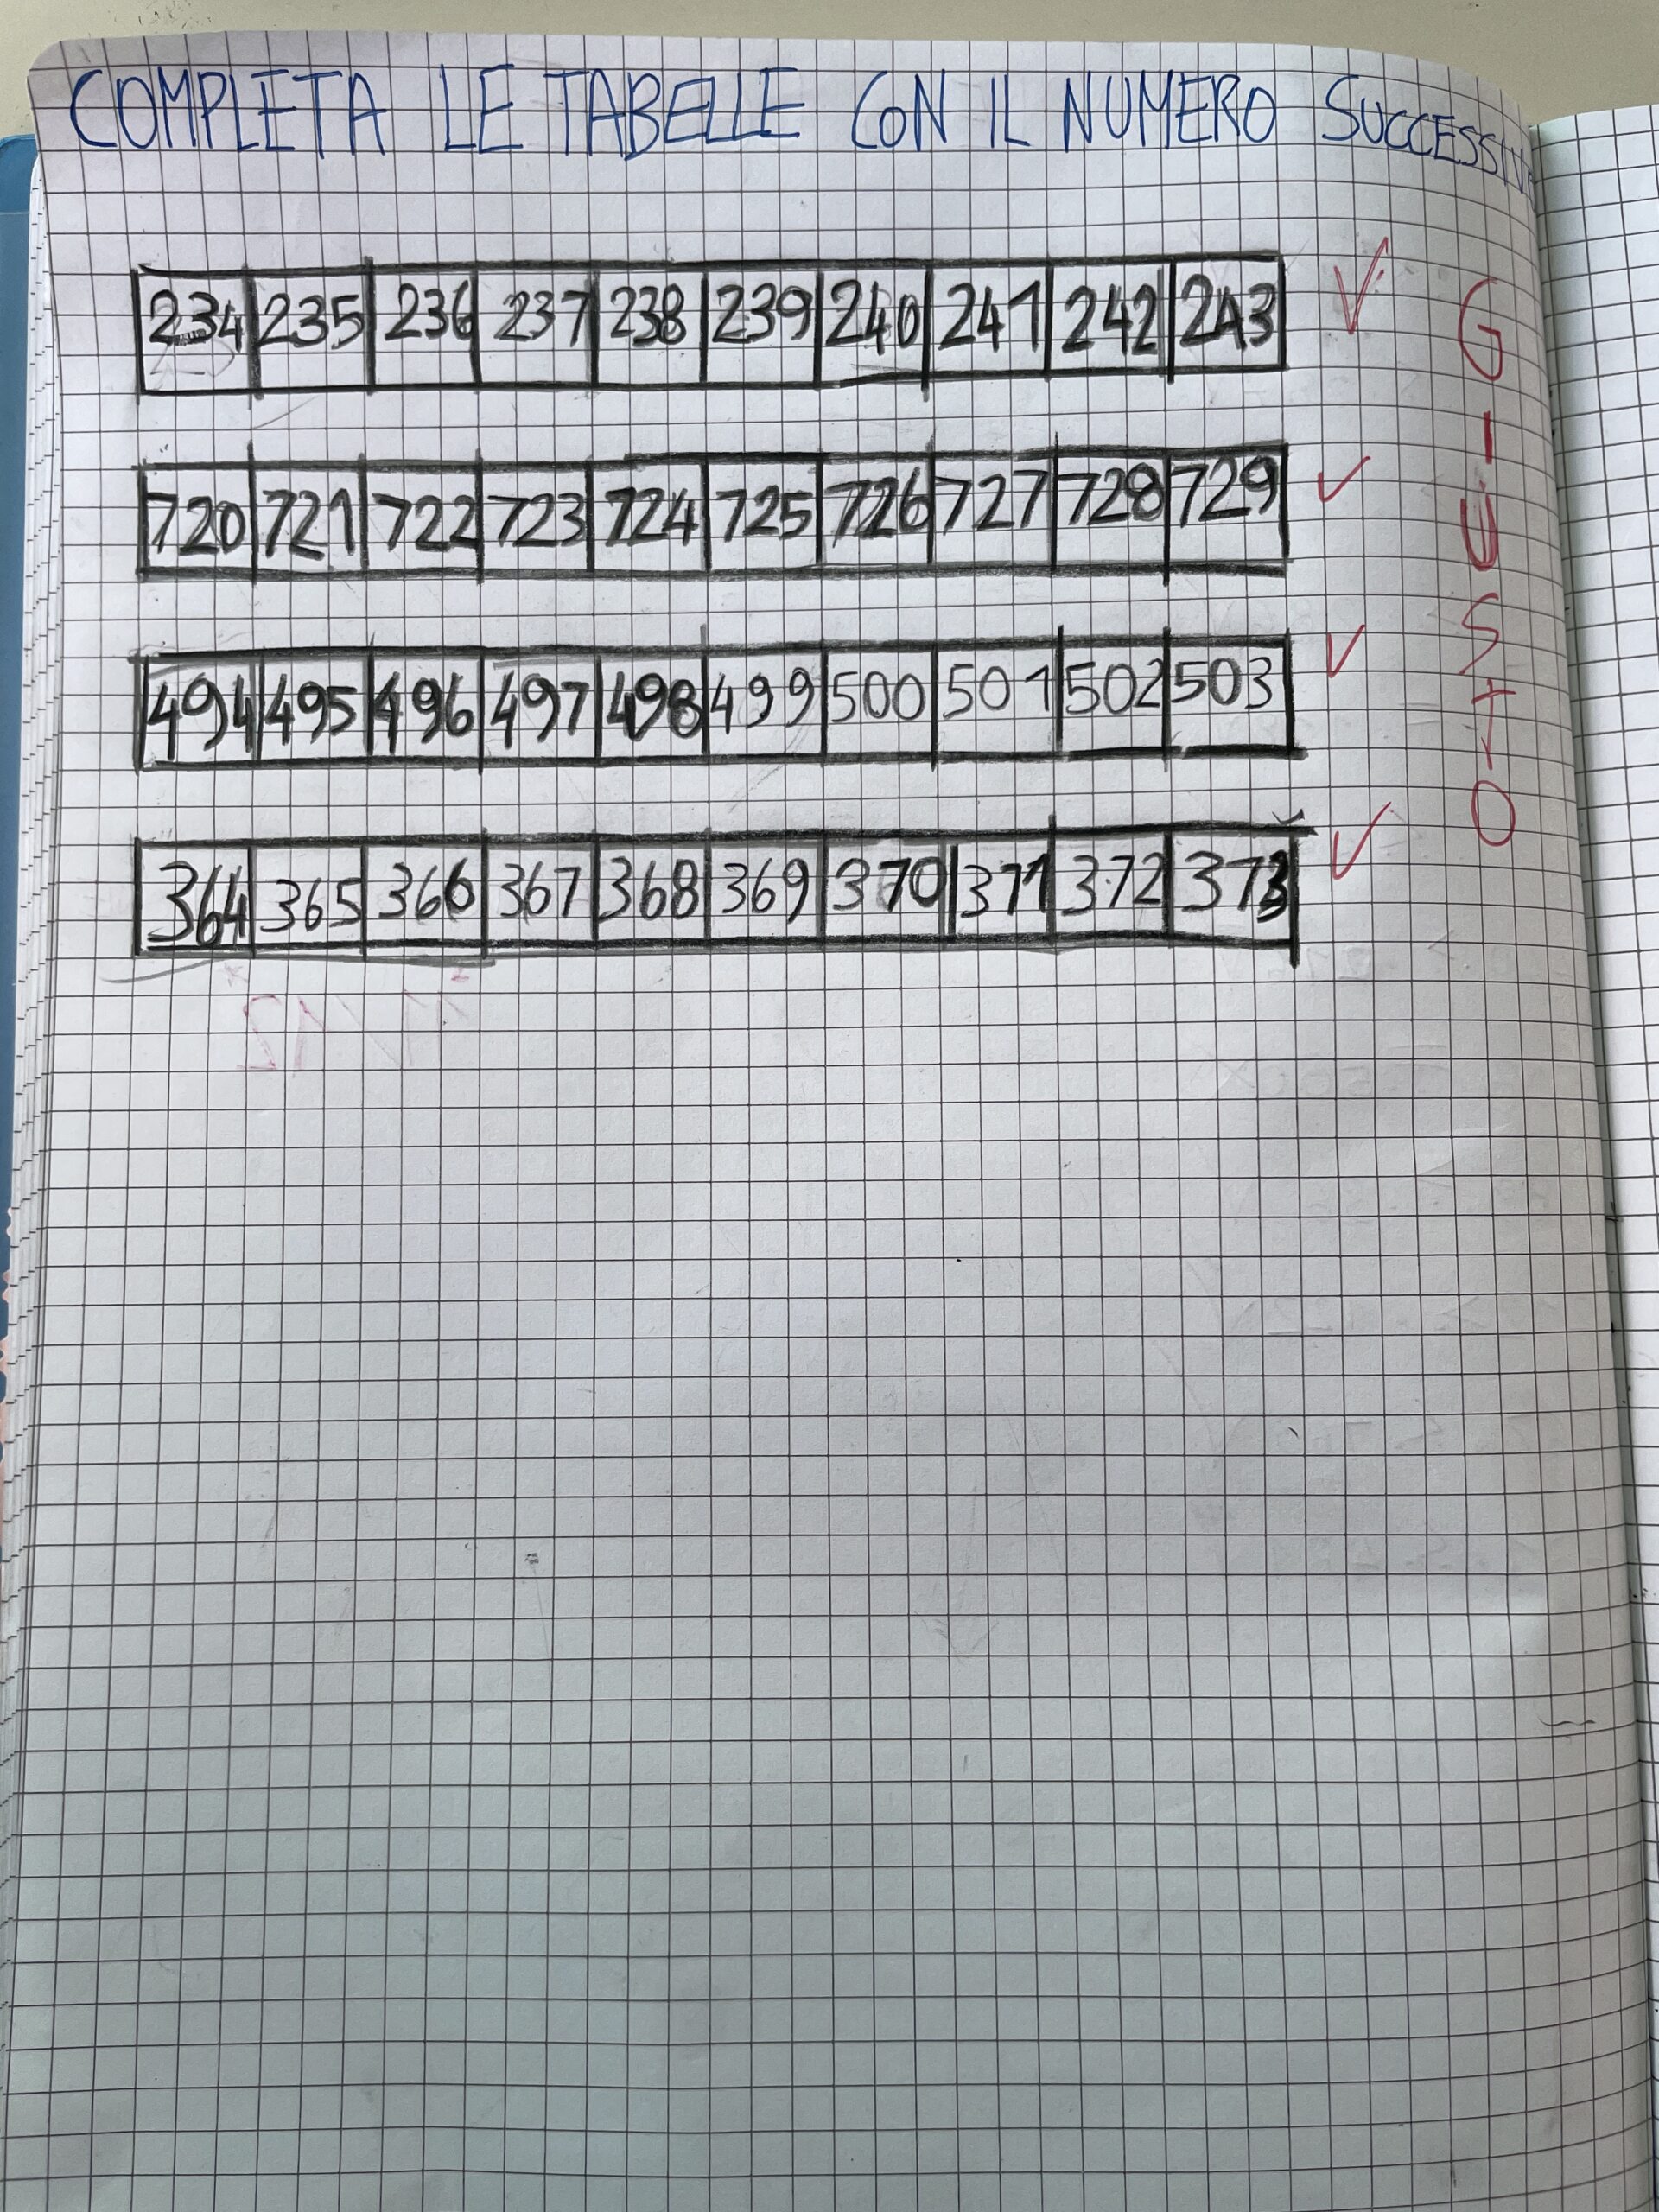 COMPLETA LE TABELLE CON IL NUMERO SUCCESSIVO
234 235 236 237 238 239 240 241 242 243
720 721 722 723 724 725 726 727 728 729
494 495 496 497 498 499 500 501 502 503
364 365 366 367 368 369 370 371 372 373
GIUSTO